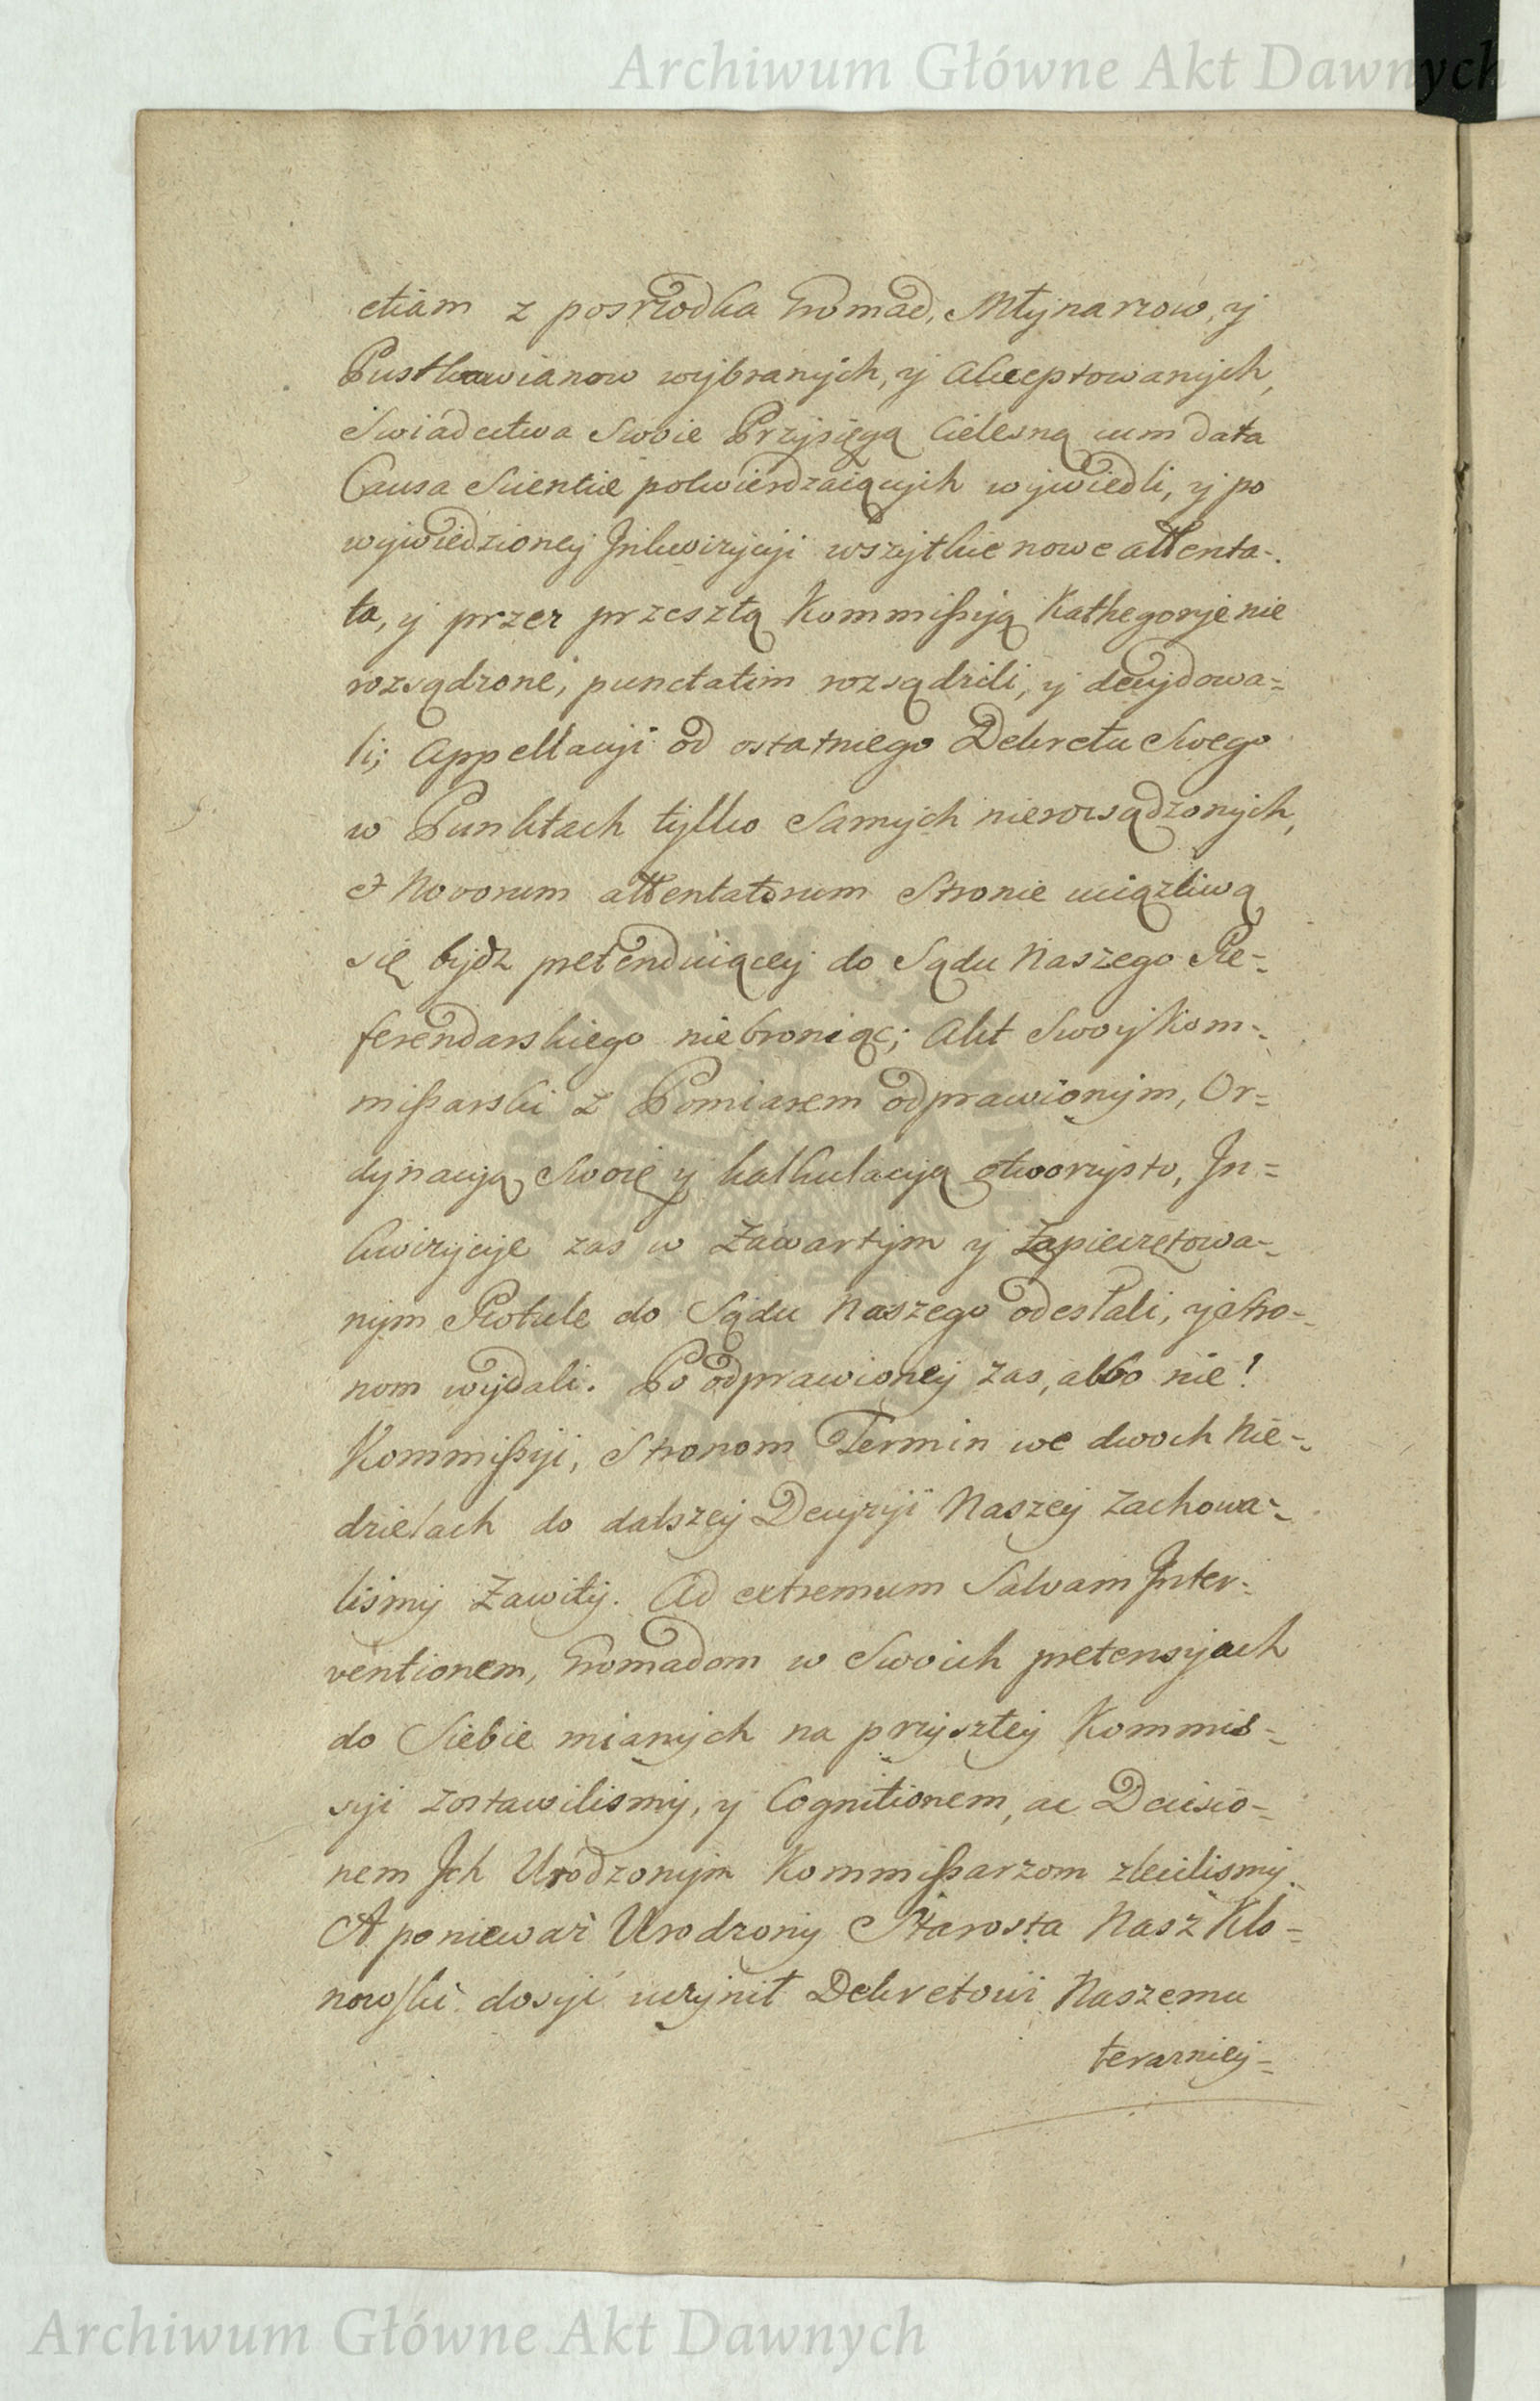 Archiwum Główne Akt Dawnych
etiam z posrzodka Gromad, Młynarzow, y
Pustkowianow wybranych, y akceptowanych,
Swiadectwa Swoie Przysięgą Cielesną cum data
Causa Scientiæ potwierdzaiących wywiedli, y po
wywiedzioney Inkwizycyi wszytkie nowe attenta-
ta, y przez przeszłą Kommissyią Kathegorye nie
rozsądzone, punctatim rozsądzili, y decydowa=
li; Appellacyi od ostatniego Dekretu Swego
w Punktach tylko Samych nierozsądzonych,
et Novorum attentatorum Stronie uciązliwą
się bydz pretenduiącey do Sądu Naszego Re-
ferendarskiego niebroniąc; Akt Swoy Kom-
missarski z Pomiarem odprawionym, Or=
dynacyą Swoię y kalkulacyą otworzysto, In=
kwizycye zas w Zawartym y Zapieczętowa-
nym Rotule do Sądu Naszego odesłali, y Stro-
nom wydali. Po odprawioney zas, albo nie!
Kommissyi, Stronom Termin we dwoch Nie-
dzielach do dalszey Decyzyi Naszey Zachowa-
lismy Zawity. Ad extremum Salvam Inter-
ventionem, Gromadom w Swoich pretensyach
do Siebie mianych na przyszłey Kommis-
syi zostawilismy, y Cognitionem, ac Decisio-
nem Ich Urodzonym Kommissarzom zlecilismy.
A poniewaz Urodzony Starosta Nasz Klo-
nowski dosyć uczynił Dekretowi Naszemu
terazniey-
Archiwum Główne Akt Dawnych